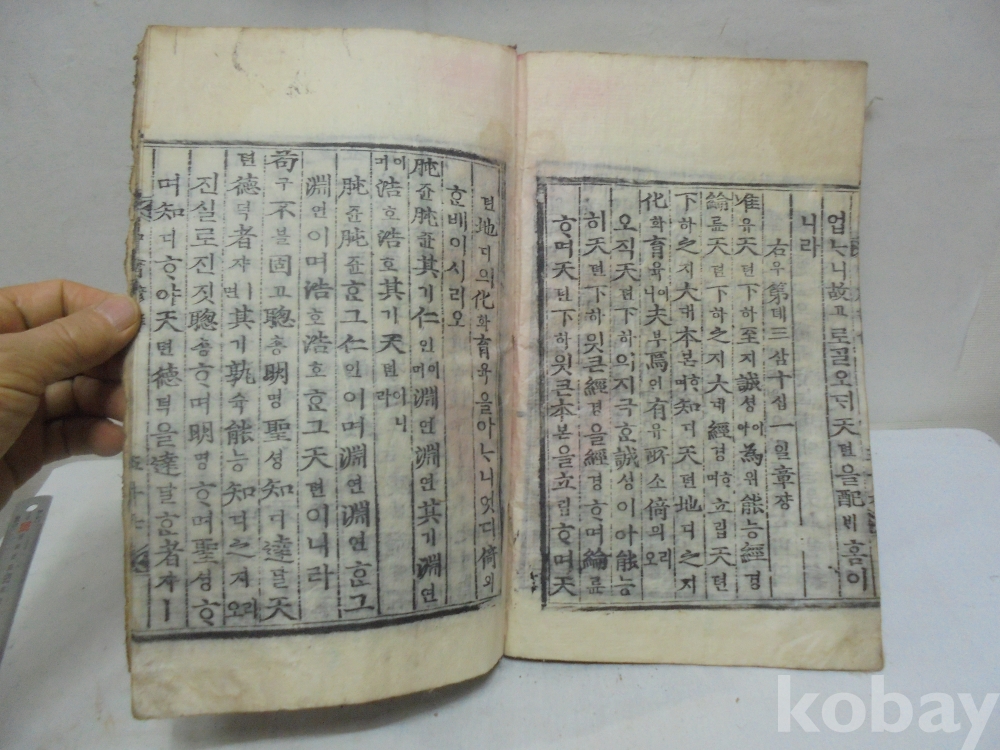 업ᄂᆞ니故고로ᄀᆞᆯ오ᄃᆡ天텬을配ᄇᆡ홈이
니라
右우第뎨三삼十십一일章쟝
唯유天텬下하至지誠셩이아為위能능經경
綸륜天텬下하之지大대經경ᄒᆞ며立립天텬
下하之지大대本본ᄒᆞ며知디天텬地디之지
化화育육이니夫부焉언有유所소倚의리오
오직天텬下하의지극ᄒᆞᆫ誠셩이아能능
히天텬下하읫큰經경을經경ᄒᆞ며綸륜
ᄒᆞ며天텬下하읫큰本본을立립ᄒᆞ며天
텬地디의化화育육을아ᄂᆞ니엇디倚의
ᄒᆞᆫ배이시리오
肫쥰肫쥰其기仁인이며淵연淵연其기淵연
이며浩호浩호其기天텬이니라
肫쥰肫쥰ᄒᆞᆫ그仁인이며淵연淵연ᄒᆞᆫ그
淵연이며浩호浩호ᄒᆞᆫ그天텬이니라
苟구不블固고聰총明명聖셩知디達달天
텬德덕者쟈ㅣ면其기孰숙能능知디之지리오
진실로진짓聰총ᄒᆞ며明명ᄒᆞ며聖셩ᄒᆞ
며知디ᄒᆞ야天텬德덕을達달ᄒᆞᆫ者쟈ㅣ
kobay